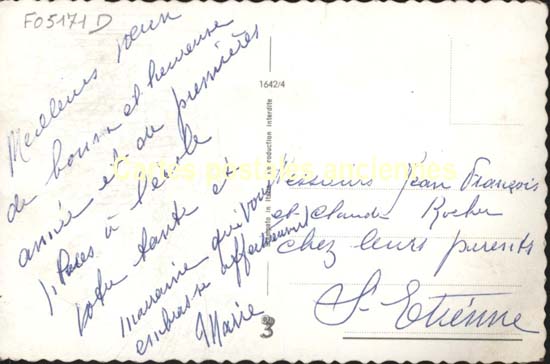 F05171D
Meilleurs voeux
de bonne et heureuse
année et de premières
places à l'école
votre tante et
marraine qui vous
embrasse affectueusement
Marie
1642/4
reproduction interdite
Cartes postales anciennes
Messieurs Jean François
et Claude Rocher
chez leurs parents
St Etienne
3